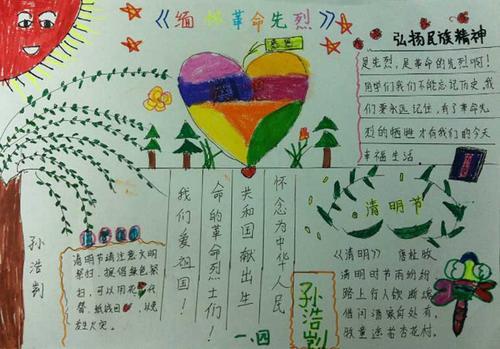 《缅怀革命先烈》
弘扬民族精神
是先烈，是革命的先烈啊！
同学们我们不能忘记历史，我
们要永远记住，有了革命先
烈的牺牲才有我们的今天
幸福生活。
怀念为中华人民
共和国献出生
命的革命烈士们！
我们爱祖国！
孙浩判
清明节请注意文明
祭扫，提倡绿色祭
扫，可以用花代
替
发生火灾。
一.四
孙浩判
清明节
《清明》 唐杜牧
清明时节雨纷纷
路上行人欲断魂
借问酒家何处有
牧童遥指杏花村。